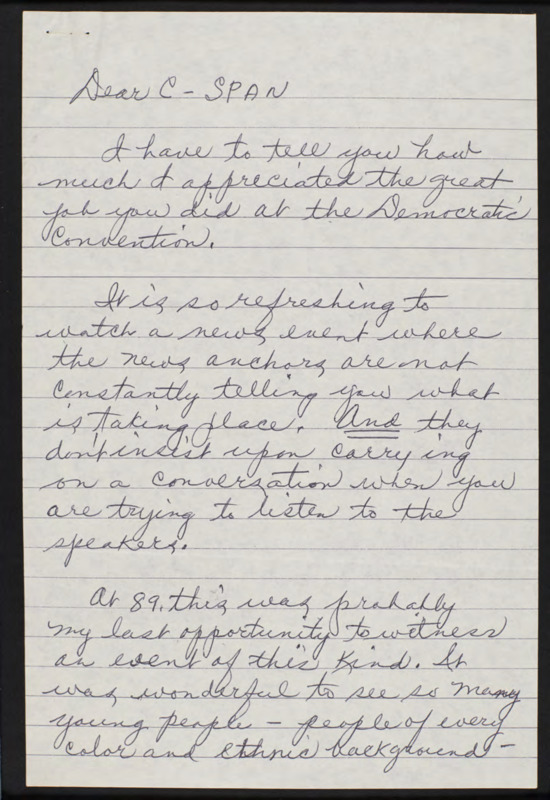 Dear C-SPAN
I have to tell you how
much I appreciated the great
job you did at the Democratic
Convention.
It is so refreshing to
watch a news event where
the news anchors are not
constantly telling you what
is taking place. And they
don't insist upon carrying
on a conversation when you
are trying to listen to the
speakers.
At 89, this was probably
my last opportunity to witness
an event of this kind. It
was wonderful to see so many
young people - people of every
color and ethnic background -